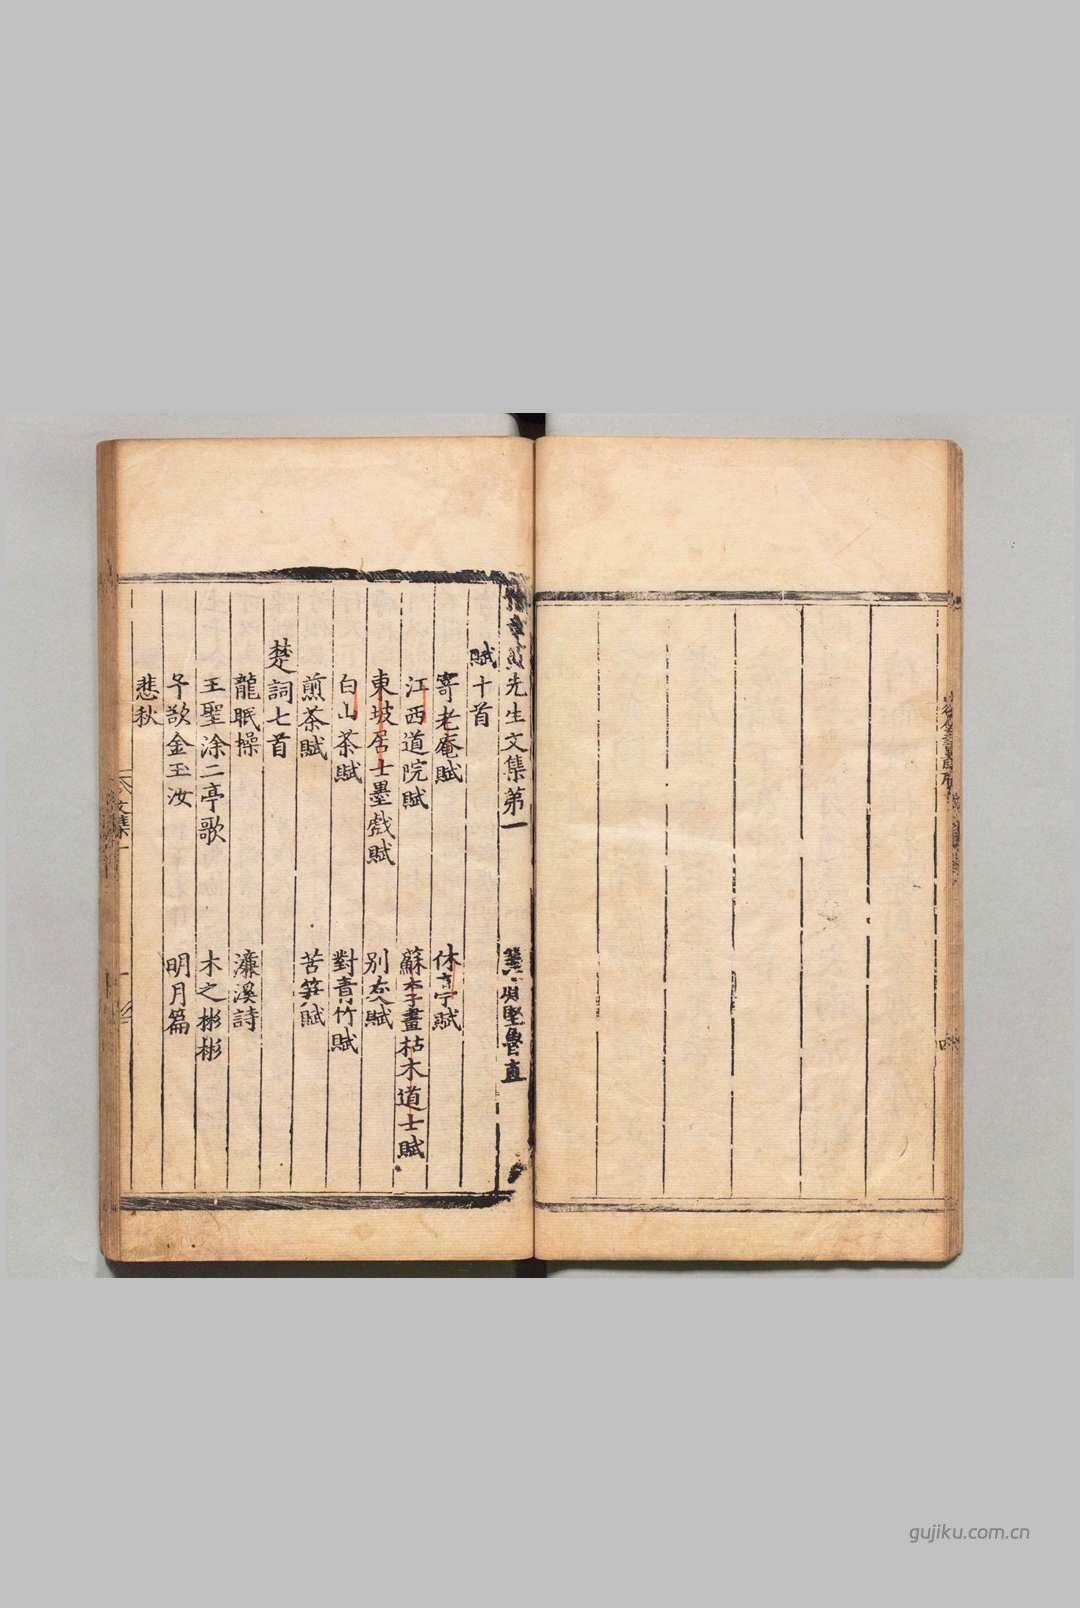 豫章黃先生文集第一　　黃庭堅魯直
賦十首
寄老庵賦　　休亭賦
江西道院賦　　蘇李畫枯木道士賦
東坡居士墨戲賦　　別友賦
白山茶賦　　對青竹賦
煎茶賦　　苦筍賦
楚詞七首
龍眠操　　濂溪詩
王聖涂二亭歌　　木之彬彬
予欲金玉汝　　明月篇
悲秋
文集一
四
gujiku.com.cn